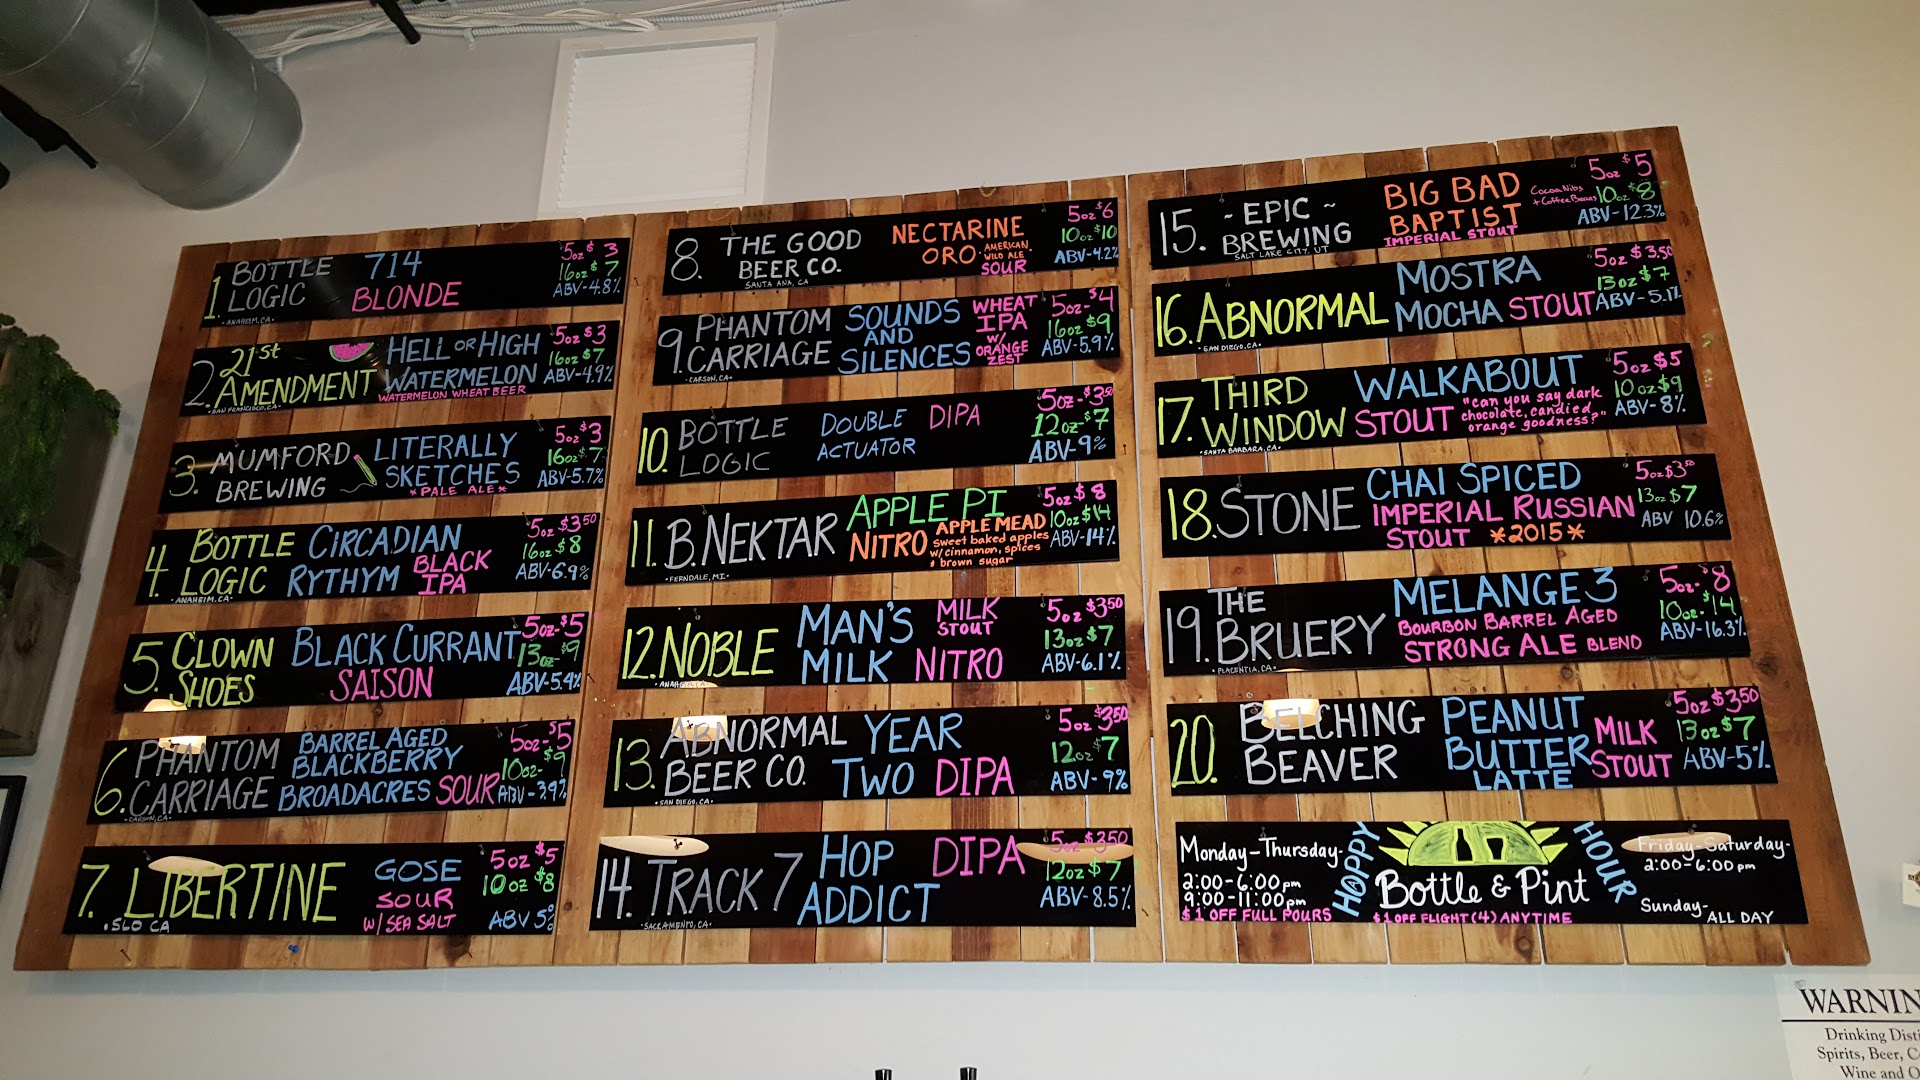 1. BOTTLE LOGIC
ANAHEIM, CA
714
BLONDE
5oz $3
16oz $7
ABV-4.8%
2. 21st AMENDMENT
SAN FRANCISCO, CA
HELL OR HIGH
WATERMELON
WATERMELON WHEAT BEER
5oz $3
16oz $7
ABV-4.9%
3. MUMFORD
BREWING
LITERALLY
SKETCHES
*PALE ALE*
5oz $3
16oz $7
ABV-5.7%
4. BOTTLE
LOGIC
ANAHEIM, CA
CIRCADIAN
RYTHYM
BLACK
IPA
5oz $3.50
16oz $8
ABV-6.9%
5. CLOWN
SHOES
BLACK CURRANT
SAISON
5oz-$5
13oz-$9
ABV-5.4%
6. PHANTOM
CARRIAGE
CARSON, CA
BARREL AGED
BLACKBERRY
BROADACRES SOUR
5oz-$5
10oz-$9
ABV-3.9%
7. LIBERTINE
SLO CA
GOSE
SOUR
W/ SEA SALT
5oz $5
10oz $8
ABV 5%
8. THE GOOD
BEER CO.
SANTA ANA, CA
NECTARINE
ORO
AMERICAN
WILD ALE
SOUR
5oz $6
10oz $10
ABV-4.2%
9. PHANTOM
CARRIAGE
CARSON, CA
SOUNDS
AND
SILENCES
WHEAT
IPA
W/
ORANGE
ZEST
5oz-$4
16oz $9
ABV-5.9%
10. BOTTLE
LOGIC
DOUBLE
ACTUATOR
DIPA
5oz-$3.50
12oz-$7
ABV-9%
11. B. NEKTAR
FERNDALE, MI
APPLE PI
NITRO
APPLE MEAD
sweet baked apples
w/ cinnamon, spices
& brown sugar
5oz $8
10oz $14
ABV-14%
12. NOBLE
ANAHEIM, CA
MAN'S
MILK
MILK
STOUT
NITRO
5oz $3.50
13oz $7
ABV-6.1%
13. ABNORMAL
BEER CO.
SAN DIEGO, CA
YEAR
TWO DIPA
5oz $3.50
12oz $7
ABV-9%
14. TRACK 7
SACRAMENTO, CA
HOP
ADDICT
DIPA
5oz $3.50
12oz $7
ABV-8.5%
15. ~ EPIC ~
BREWING
SALT LAKE CITY, UT
BIG BAD
BAPTIST
IMPERIAL STOUT
Cocoa Nibs
+ Coffee Beans
5oz $5
10oz $8
ABV-12.3%
16. ABNORMAL
SAN DIEGO, CA
MOSTRA
MOCHA STOUT
5oz $3.50
13oz $7
ABV-5.1%
17. THIRD
WINDOW
SANTA BARBARA, CA
WALKABOUT
STOUT
"can you say dark
chocolate, candied
orange goodness?"
5oz $5
10oz $9
ABV-8%
18. STONE
CHAI SPICED
IMPERIAL RUSSIAN
STOUT *2015*
5oz $3.50
13oz $7
ABV 10.6%
19. THE
BRUERY
PLACENTIA, CA
MELANGE 3
BOURBON BARREL AGED
STRONG ALE BLEND
5oz-$8
10oz-$14
ABV-16.3%
20. BELCHING
BEAVER
PEANUT
BUTTER
LATTE
MILK
STOUT
5oz $3.50
13oz $7
ABV-5%
Monday-Thursday-
2:00-6:00pm
9:00-11:00pm
$1 OFF FULL POURS
HOPPY
HOUR
Bottle & Pint
$1 OFF FLIGHT (4) ANYTIME
Friday-Saturday-
2:00-6:00pm
Sunday-
ALL DAY
WARNIN
Drinking Disti
Spirits, Beer, C
Wine and O